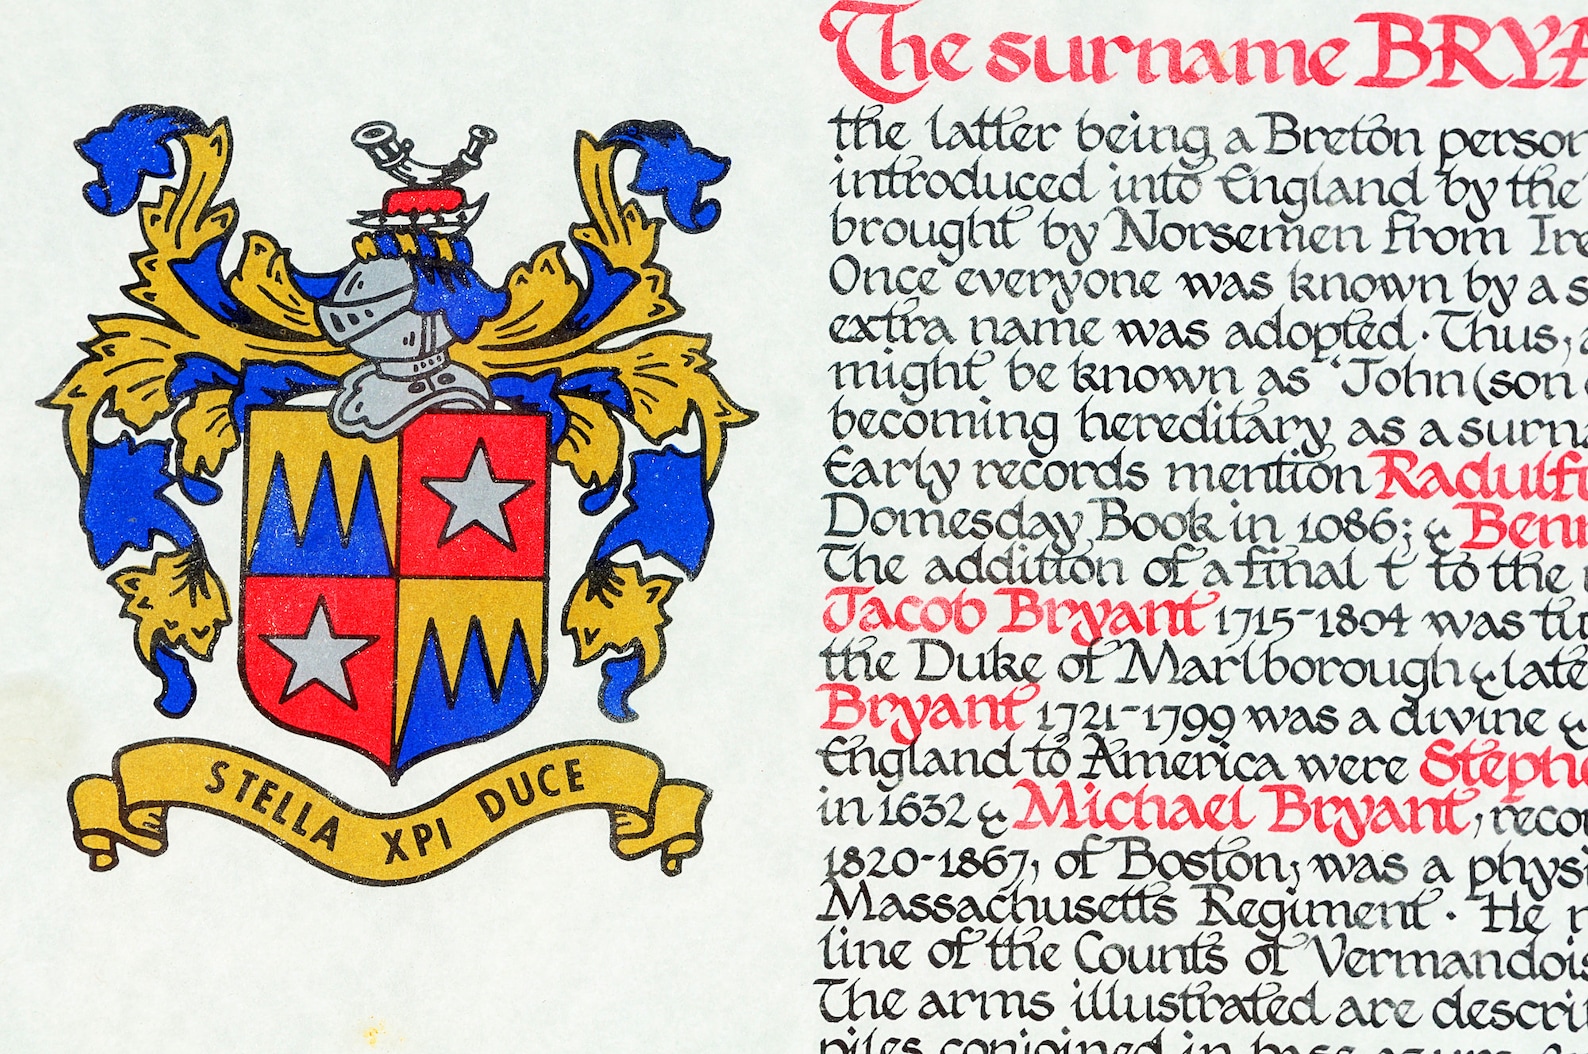 STELLA XPI DUCE
The surname BRYA
the latter being a Breton person
introduced into England by the
brought by Norsemen from Ire
Once everyone was known by a s
extra name was adopted. Thus, a
might be known as 'John (son o
becoming hereditary as a surna
Early records mention Radulfu
Domesday Book in 1086; & Benn
The addition of a final 't' to the n
Jacob Bryant 1715-1804 was tu
the Duke of Marlborough & late
Bryant 1721-1799 was a divine &
England to America were Stephe
in 1632 & Michael Bryant, recor
1820-1867, of Boston, was a physi
Massachusetts Regiment. He m
line of the Counts of Vermandois
The arms illustrated are descri
piles conjoined in base azure &